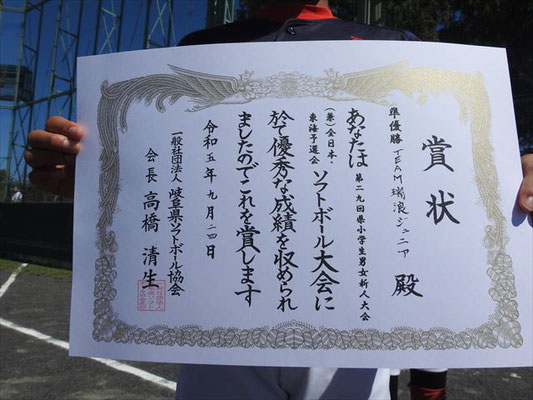 賞状
準優勝 TEAM瑞浪ジュニア 殿
あなたは 第二九回県小学生男女新人大会
(兼)全日本・東海予選会 ソフトボール大会に
於て優秀な成績を収められ
ましたのでこれを賞します
令和五年九月二四日
一般社団法人 岐阜県ソフトボール協会
会長 高橋清生